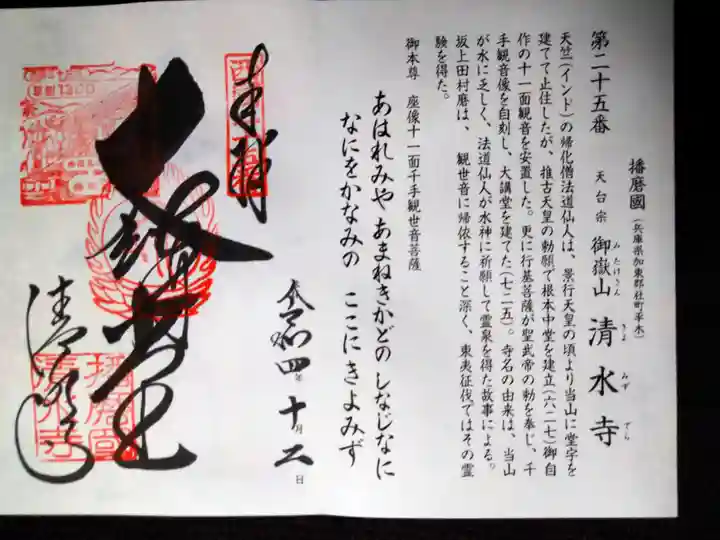 第二十五番
播磨國(兵庫県加東郡社町平木)
天台宗 御嶽山 清水寺
みたけさん きよみずでら
天竺(インド)の帰化僧法道仙人は、景行天皇の頃より当山に堂字を
建てて止住したが、推古天皇の勅願で根本中堂を建立(六二七)御自
作の十一面観音を安置した。更に行基菩薩が聖武帝の勅を奉じ、千
手観音像を自刻し、大講堂を建てた(七二五)。寺名の由来は、当山
が水に乏しく、法道仙人が水神に祈願して霊泉を得た故事による。
坂上田村磨は、観世音に帰依すること深く、東夷征伐ではその霊
験を得た。
御本尊 座像十一面千手観世音菩薩
あはれみや あまねきかどの しなじなに
なにをかなみの ここにきよみず
奉拝
令和四年十月二日
大講堂
清水寺
播磨國清水寺